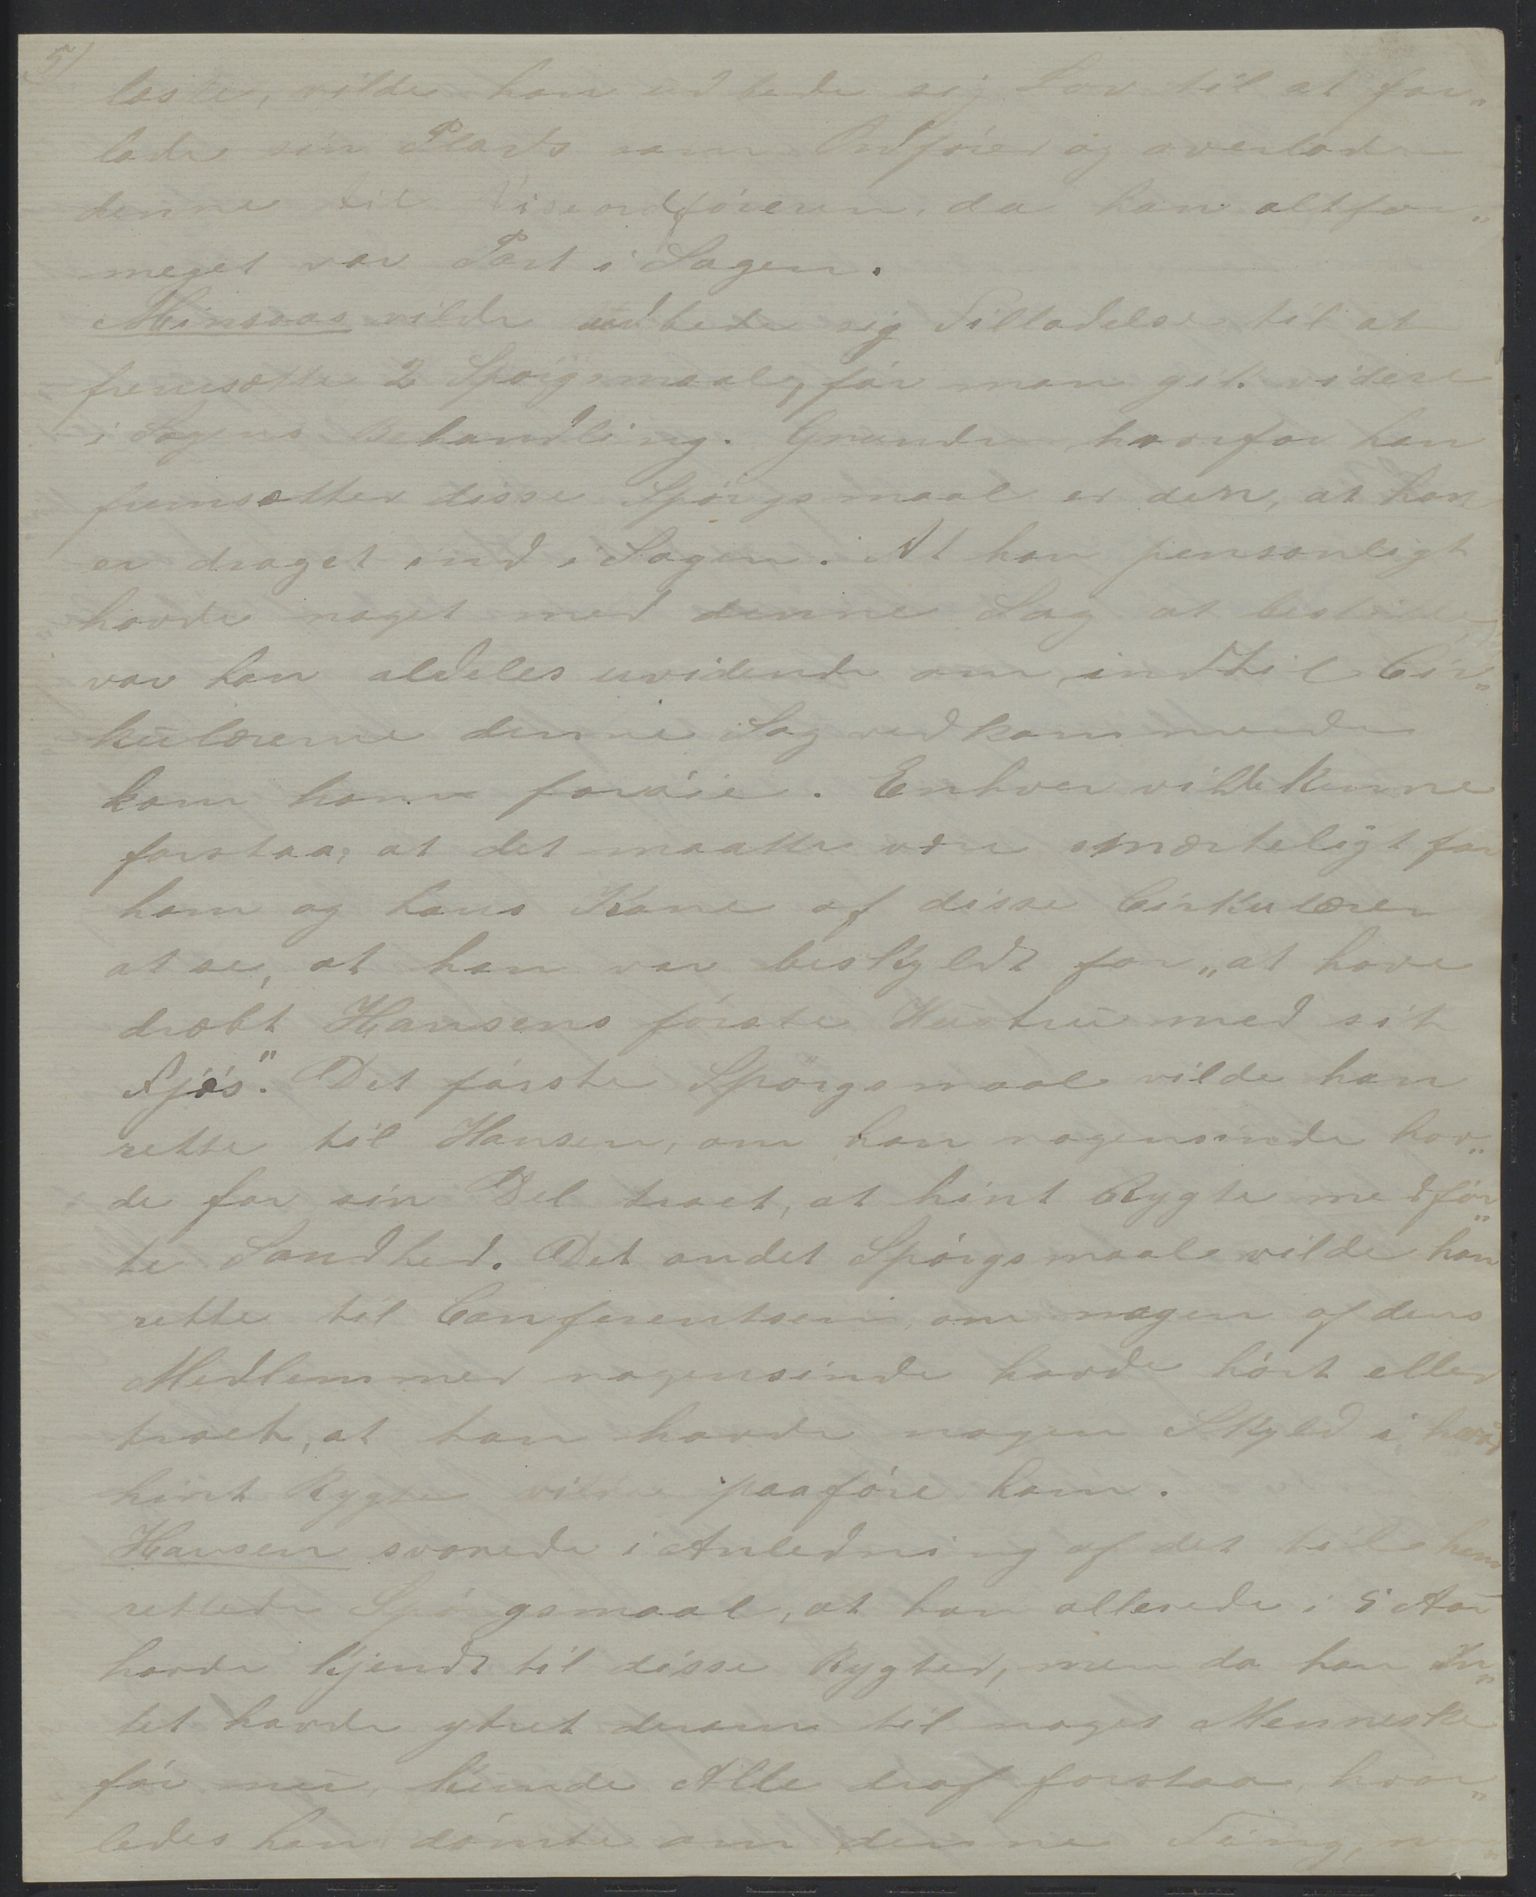 5)
læste, vilde han udbede sig Lov til at for„
lade sin Plads som Ordfører og overlade
denne til Viseordføreren, da han altfor„
meget var Part i Sagen.
Minsaas vilde udbede sig Tilladelse til at
fremsætte 2 Spørgsmaal, før man gik videre
i Sagens Behandling. Grunden hvorfor han
fremsætter disse Spørgsmaal er den, at han
er draget ind i Sagen. At han personligt
havde noget med denne Sag at bestille,
var han aldeles uvidende om indtil Cir„
kulærerne denne Sag vedkommende
kom ham forøie. Enhver vilde kunne
forstaa, at det maatte være smærteligt for
ham og hans Kone af disse Cirkulærer
at se, at han var beskyldt for „at have
dræbt Hansens første Hustru med sit
Fjøs". Det første Spørgsmaal vilde han
rette til Hansen, om han nogensinde hav„
de for sin Del troet, at hint Rygte medfør„
te Sandhed. Det andet Spørgsmaal vilde han
rette til Conferentsen, om nogen af dens
Medlemmer nogensinde havde hørt eller
troet, at han havde nogen Skyld i, hvad
hint Rygte vilde paaføre ham.
Hansen svarede i Anledning af det til ham
rettede Spørgsmaal, at han allerede i 5 Aar
havde kjendt til disse Rygter, men da han In„
tet havde ytret derom til noget Menneske
før nu, kunde Alle traf forstaa, hvor„
ledes han dømte om denne Ting,